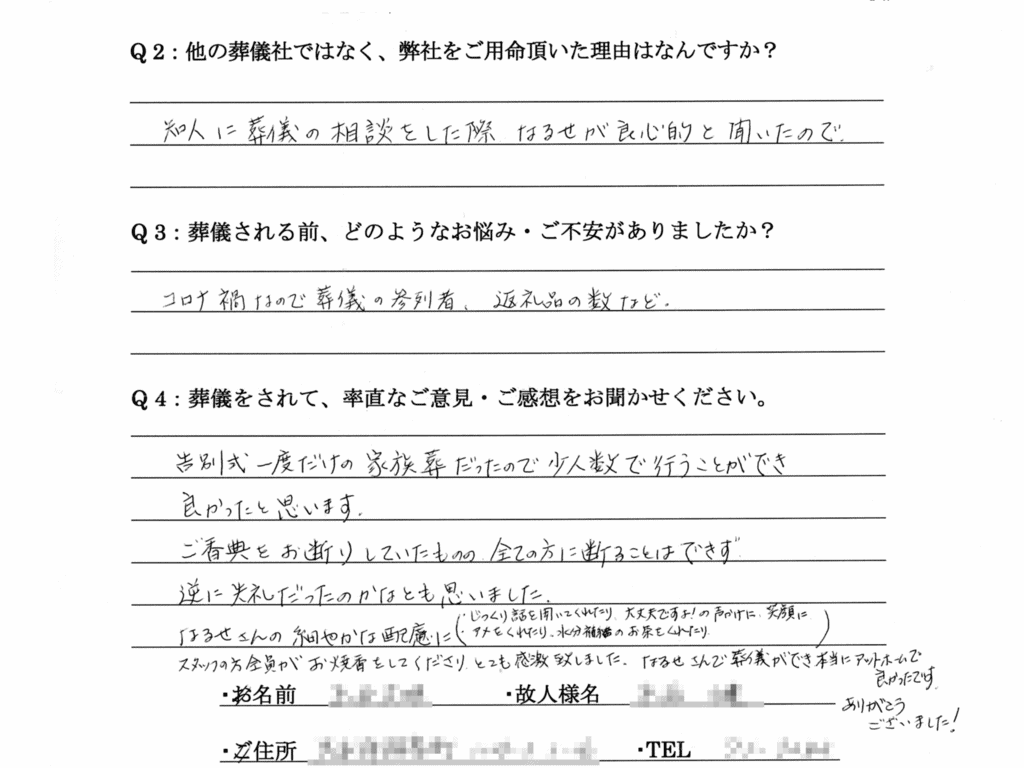 Q2：他の葬儀社ではなく、弊社をご用命頂いた理由はなんですか？
知人に葬儀の相談をした際 なるせが良心的と聞いたので.
Q3：葬儀される前、どのようなお悩み・ご不安がありましたか？
コロナ禍なので葬儀の参列者、返礼品の数など.
Q4：葬儀をされて、率直なご意見・ご感想をお聞かせください。
告別式一度だけの家族葬だったので少人数で行うことができ
良かったと思います.
ご香典をお断りしていたものの 全ての方に断ることはできず
逆に失礼だったのかなとも思いました.
なるせさんの細やかな配慮に
・じっくり話を聞いてくれたり、大丈夫ですよ!の声かけに、笑顔に
・アメをくれたり、水分補給のお茶をくれたり
スタッフの方全員がお焼香をしてくださり とても感激致しました. なるせさんで葬儀ができ本当にアットホームで
良かったです.
ありがとう
ございました!
・お名前 ・故人様名
・ご住所 ・TEL